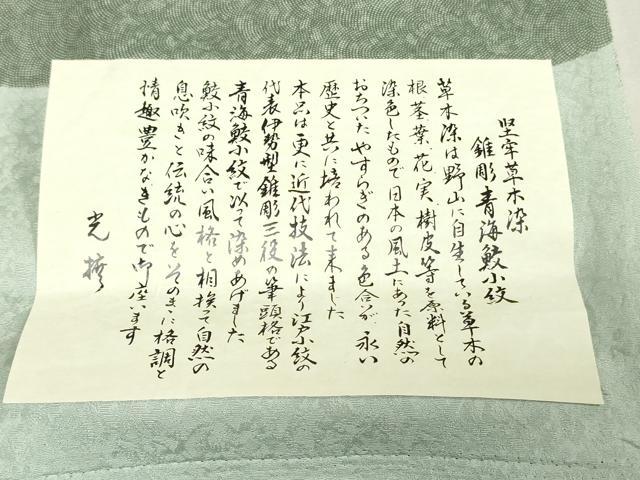 堅牢草木染
錐彫青海鮫小紋
草木染は野山に自生している草木の
根茎葉、花、実、樹皮等を原料として
染色したもので日本の風土にあった自然の
おちついたやすらぎのある色合が永い
歴史と共に培われて来ました
本品は更に近代技法により江戸小紋の
代表伊勢型錐彫三役の筆頭格である
青海鮫小紋で以って染めあげました
鮫小紋の味合い風格と相挨って自然の
息吹きと伝統の心をそのまゝに格調と
情趣豊かなきもので御座います
光